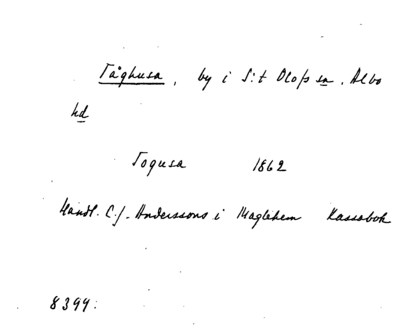 Tåghusa, by i S:t Olofs sn. Albo
hd
Togusa 1862
Handl. C.J. Anderssons i Maglehem Kassabok
8394: